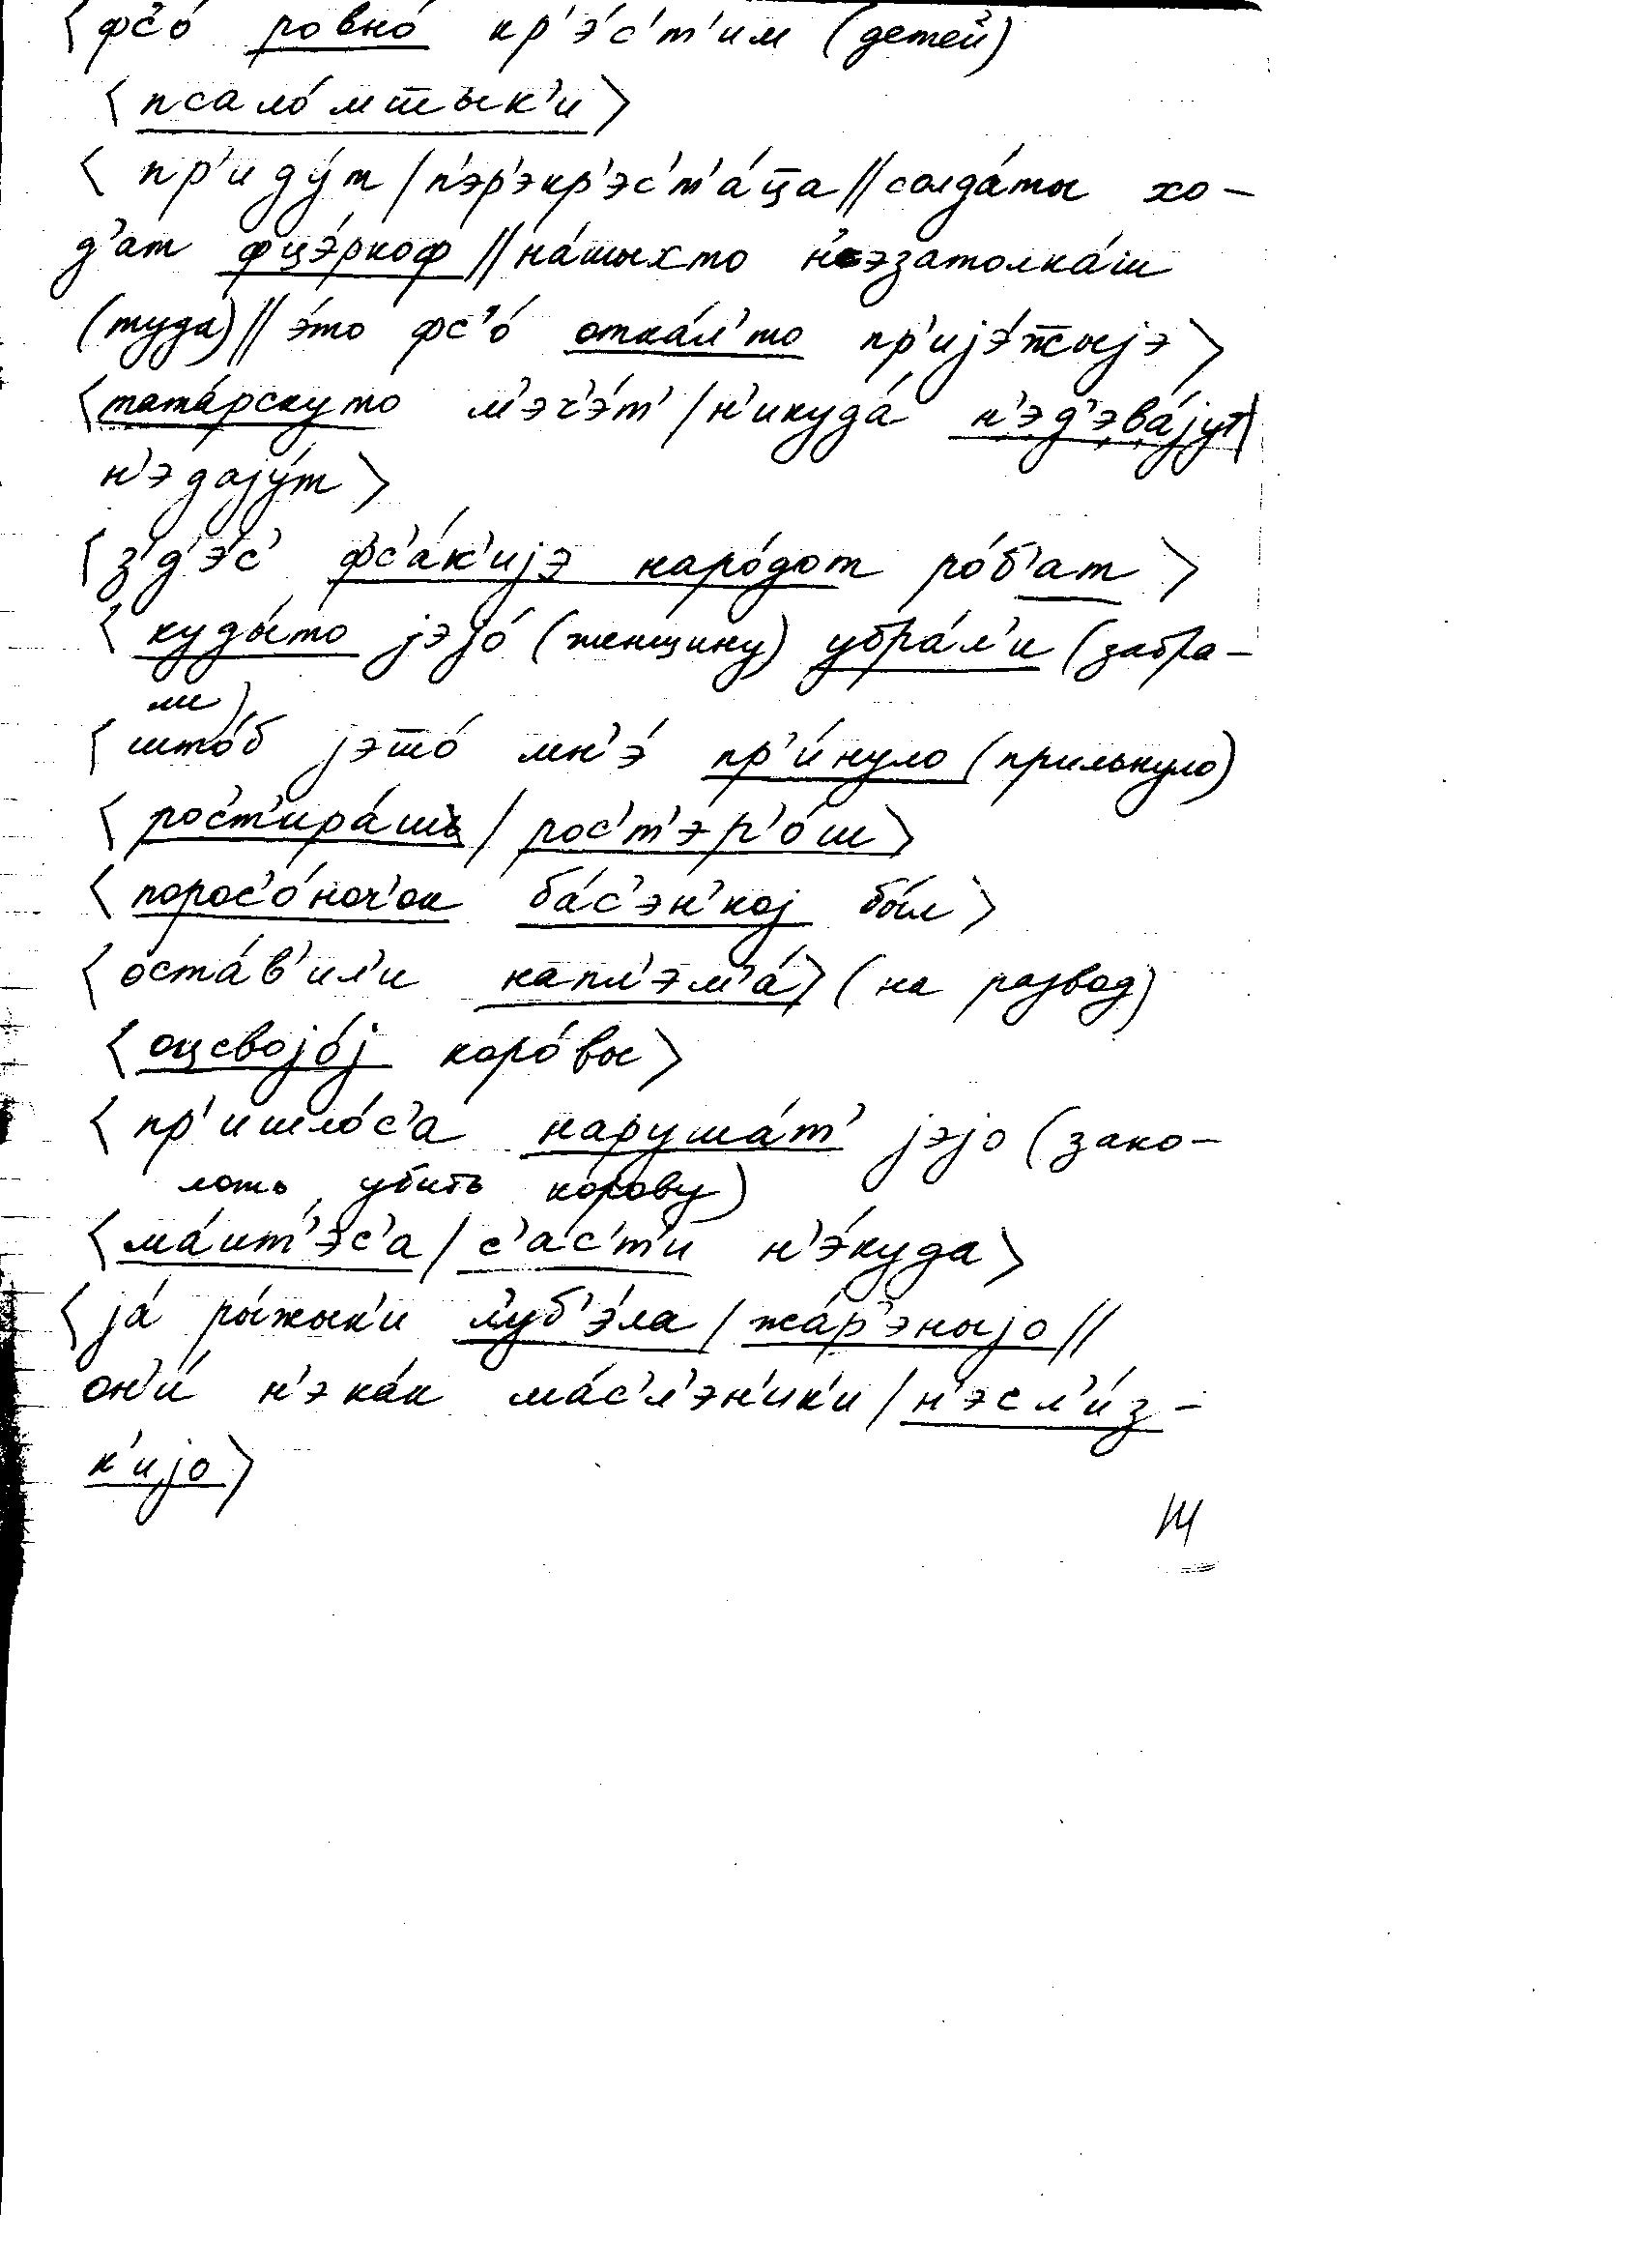 ⟨ фс'о́ ровно́ кр'э́с'т'им (детей)
⟨ псало́мт̅ык'и ⟩
⟨ пр'иду́т / п'эр'экр'эс'т'а́ц̅а // солда́ты хо-
д'ат фцэ́ркоф // на́шыхто н'эзатолка́ш
(туда) // э́то фс'о́ отка́л'то пр'ијэ́ж̅ыјэ ⟩
⟨ тата́рскуто м'эч'э́т' / н'икуда́ н'эд'эва́јут /
н'эдају́т ⟩
⟨ з'д'э́с' фс'а́к'ијэ наро́дот ро́б'ат ⟩
⟨ куды́то јэјо́ (женщину) убра́л'и (забра-
ли)
⟨ што́б јэто́ мн'э́ пр'и́нуло (прильнуло)
⟨ рост'ира́ш / рос'т'эр'о́ш ⟩
⟨ порос'о́ноч'ок ба́с'эн'кој бы́л ⟩
⟨ оста́в'ил'и напл'эм'а́ ⟩ (на развод)
⟨ оцсвојо́ј коро́вы ⟩
⟨ пр'ишло́с'а наруша́т' јэјо (зако-
лоть, убить корову)
⟨ ма́ит'эс'а / с'а́с'т'и н'э́куда ⟩
⟨ ја́ ры́жык'и л'уб'э́ла / жа́р'эныјо //
он'и́ н'эка́к ма́с'л'эн'ик'и / н'эсл'и́з-
к'ијо ⟩